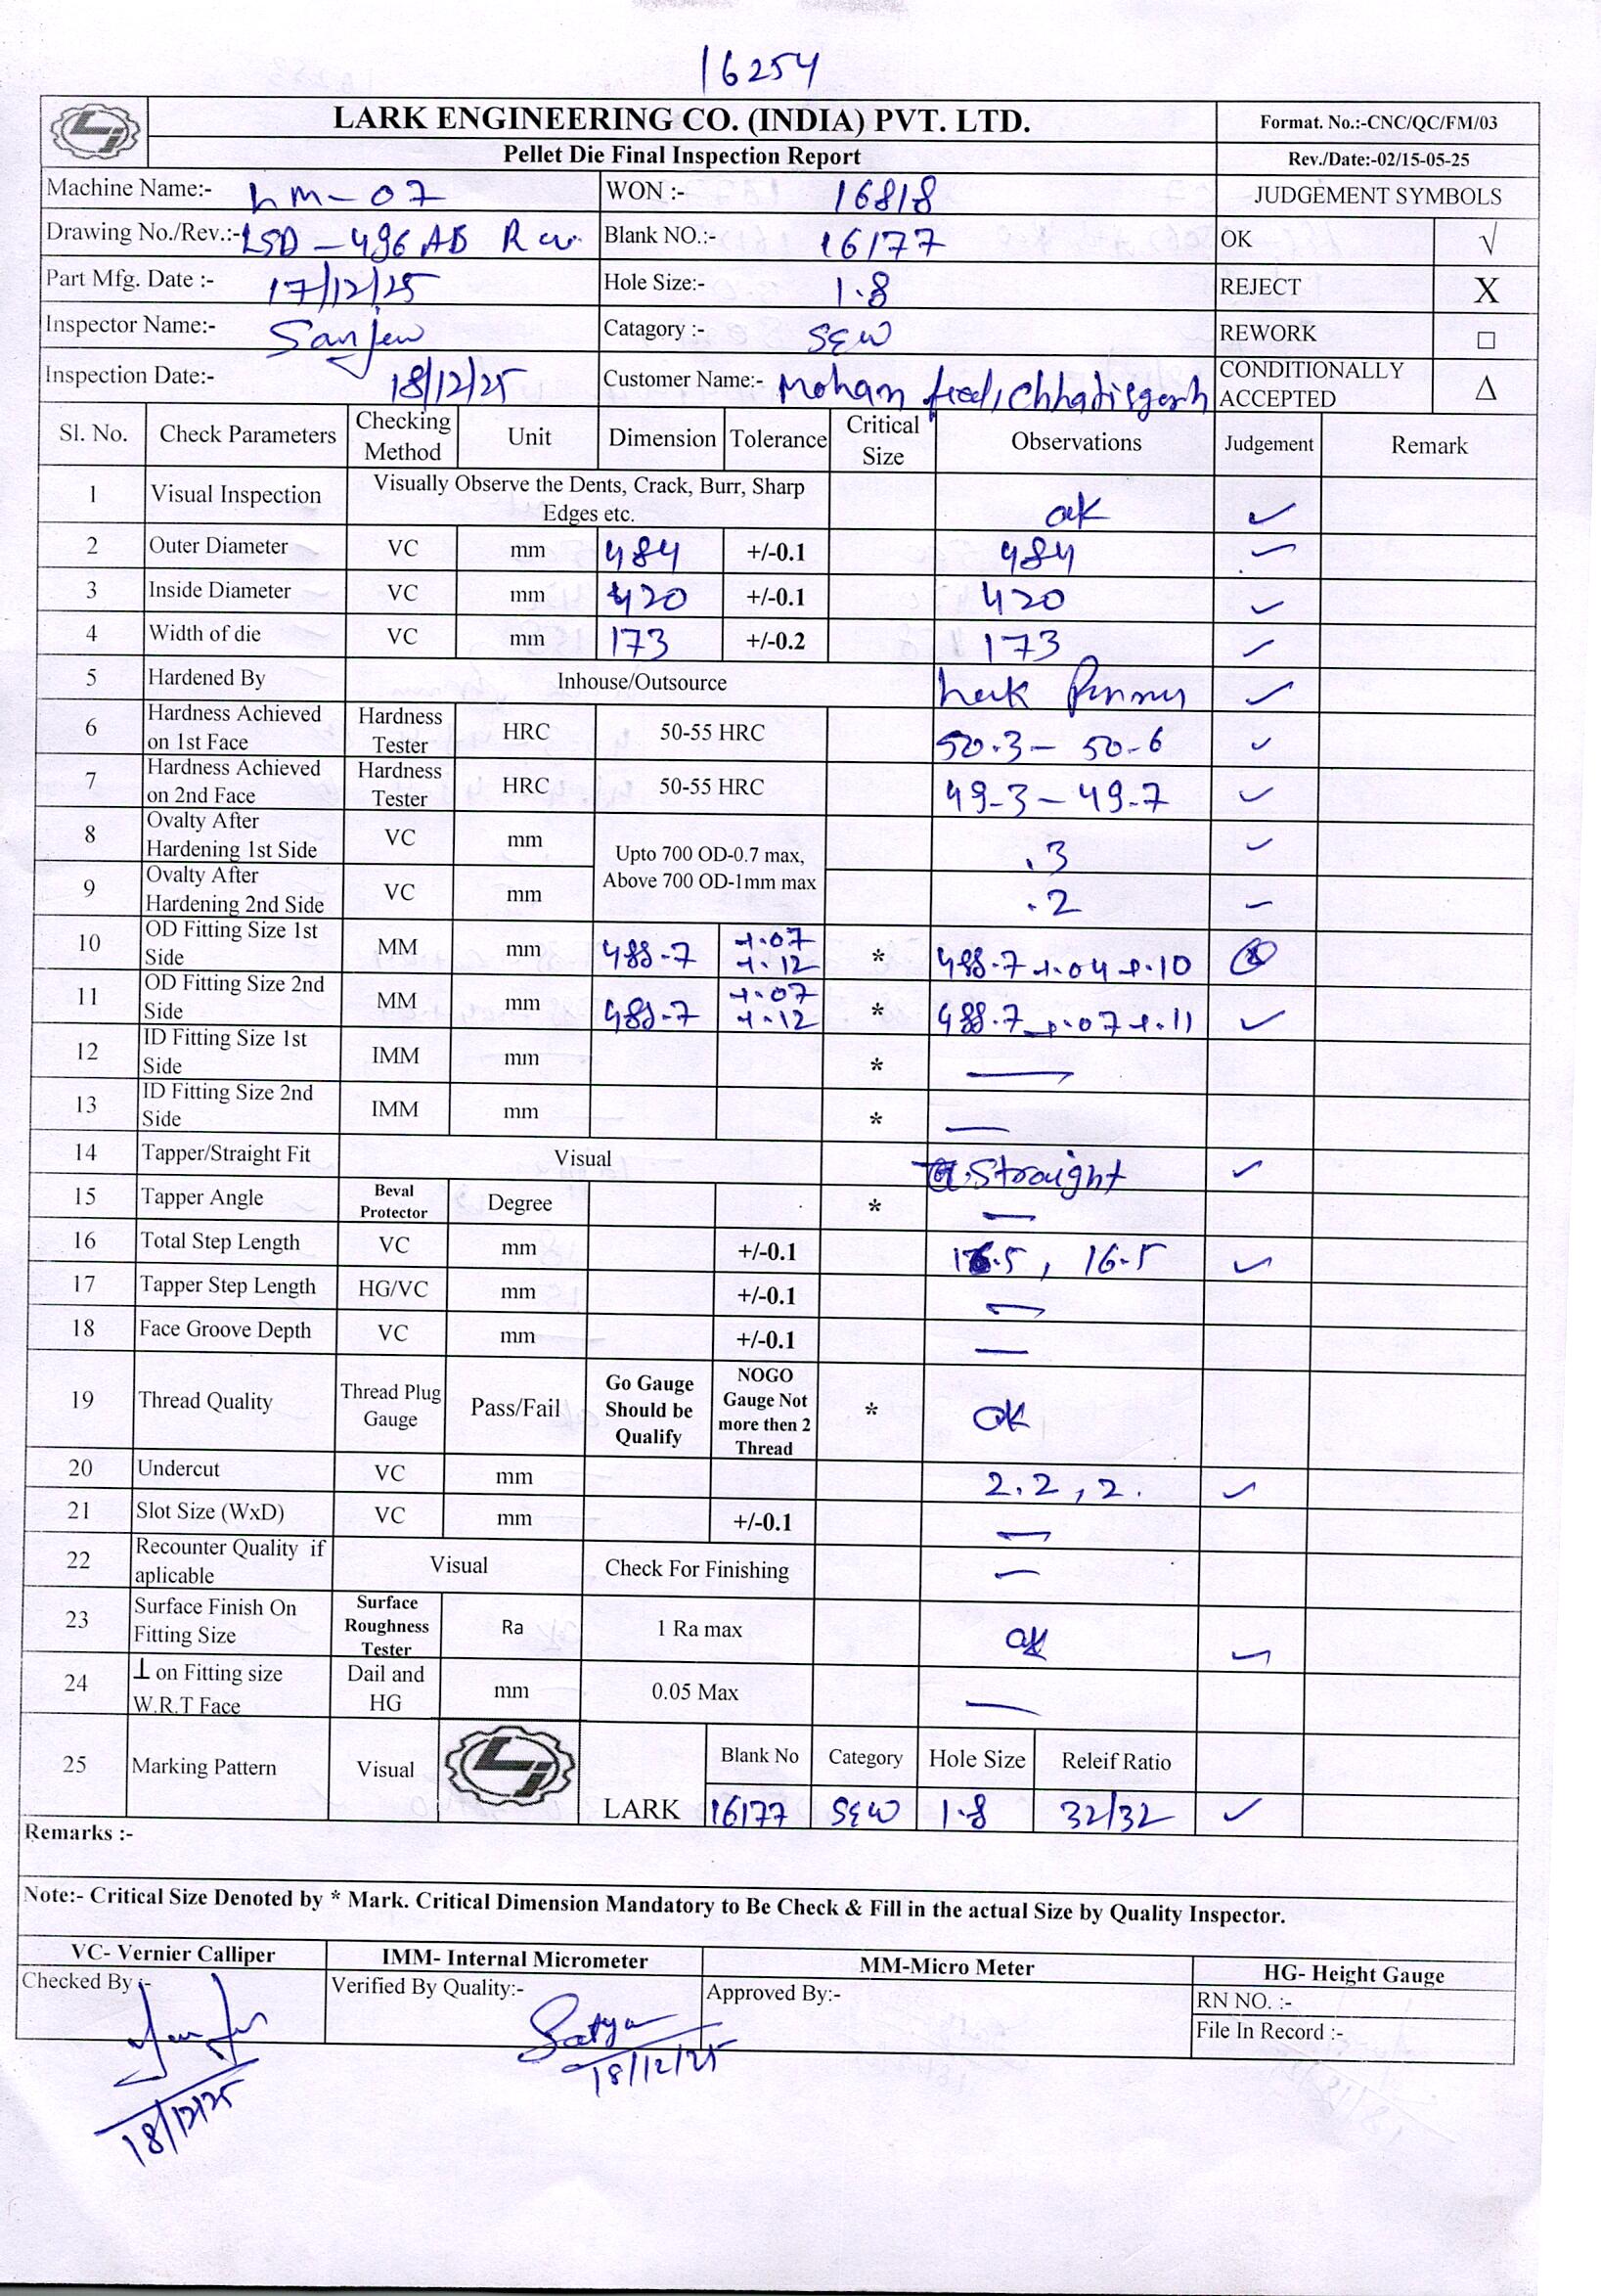 16254
LARK ENGINEERING CO. (INDIA) PVT. LTD.
Format. No.:-CNC/QC/FM/03
Pellet Die Final Inspection Report
Rev./Date:-02/15-05-25
Machine Name:- LM-07 WON :- 16818 JUDGEMENT SYMBOLS
Drawing No./Rev.:- LSD-496 AB Blank NO.:- 16177 OK √
Part Mfg. Date :- 17/12/25 Hole Size:- 1.8 REJECT X
Inspector Name:- Sanjew Catagory :- SEW REWORK □
Inspection Date:- 18/12/25 Customer Name:- Mohan feed, Chhatisgarh CONDITIONALLY ACCEPTED Δ
Sl. No. Check Parameters Checking Method Unit Dimension Tolerance Critical Size Observations Judgement Remark
1 Visual Inspection Visually Observe the Dents, Crack, Burr, Sharp Edges etc. ok ✓
2 Outer Diameter VC mm 484 +/-0.1 484 ✓
3 Inside Diameter VC mm 420 +/-0.1 420 ✓
4 Width of die VC mm 173 +/-0.2 173 ✓
5 Hardened By Inhouse/Outsource ✓
6 Hardness Achieved on 1st Face Hardness Tester HRC 50-55 HRC 50.3 - 50.6 ✓
7 Hardness Achieved on 2nd Face Hardness Tester HRC 50-55 HRC 49.3 - 49.7 ✓
8 Ovalty After Hardening 1st Side VC mm Upto 700 OD-0.7 max, Above 700 OD-1mm max .3 ✓
9 Ovalty After Hardening 2nd Side VC mm .2 ✓
10 OD Fitting Size 1st Side MM mm 488.7 +.07 +.12 * 488.7 +.04 +.10
11 OD Fitting Size 2nd Side MM mm 488.7 +.07 +.12 * 488.7 +.07 +.11 ✓
12 ID Fitting Size 1st Side IMM mm * —
13 ID Fitting Size 2nd Side IMM mm * —
14 Tapper/Straight Fit Visual Straight ✓
15 Tapper Angle Beval Protector Degree * —
16 Total Step Length VC mm +/-0.1 16.5, 16.5 ✓
17 Tapper Step Length HG/VC mm +/-0.1 —
18 Face Groove Depth VC mm +/-0.1 —
19 Thread Quality Thread Plug Gauge Pass/Fail Go Gauge Should be Qualify NOGO Gauge Not more then 2 Thread * ok
20 Undercut VC mm 2.2, 2. ✓
21 Slot Size (WxD) VC mm +/-0.1 —
22 Recounter Quality if aplicable Visual Check For Finishing —
23 Surface Finish On Fitting Size Surface Roughness Tester Ra 1 Ra max ok ✓
24 ⊥ on Fitting size W.R.T Face Dail and HG mm 0.05 Max —
25 Marking Pattern Visual LARK Blank No Category Hole Size Releif Ratio
16177 SEW 1.8 32/32 ✓
Remarks :-
Note:- Critical Size Denoted by * Mark. Critical Dimension Mandatory to Be Check & Fill in the actual Size by Quality Inspector.
VC- Vernier Calliper IMM- Internal Micrometer MM-Micro Meter HG- Height Gauge
Checked By :- Verified By Quality:- Approved By:- RN NO. :-
File In Record :-
Satya
18/12/25
18/12/25